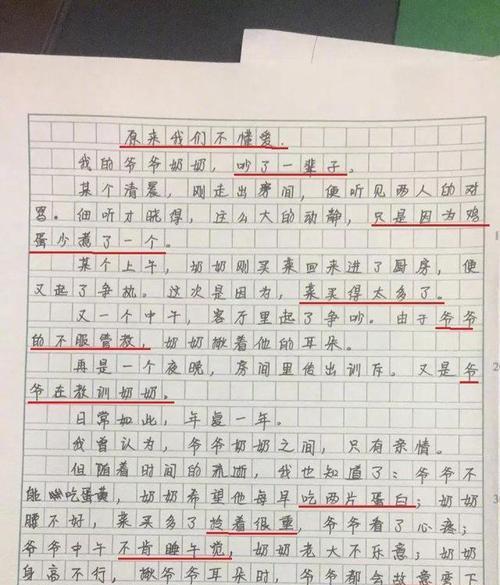 原来我们不懂爱.
我的爷爷奶奶，吵了一辈子。
某个清晨，刚走出房间，便听见两人的对
骂。细听才晓得，这么大的动静，只是因为鸡
蛋少煮了一个。
某个上午，奶奶刚买菜回来进了厨房，便
又起了争执。这次是因为，菜买得太多了。
又一个中午，客厅里起了争吵。由于爷爷
的不服管教，奶奶揪着他的耳朵。
再是一个夜晚，房间里传出训斥。又是爷
爷在教训奶奶。
日常如此，年复一年。
我曾认为，爷爷奶奶之间，只有亲情。
但随着时间的流逝，我也知道了：爷爷不
能吃蛋黄，奶奶希望他每早吃两片蛋白；奶奶
腰不好，菜买多了拎着很重，爷爷看了心疼；
爷爷中午不肯睡午觉，奶奶老大不乐意；奶奶
身高不行，揪爷爷耳朵时，爷爷都会故意弯下